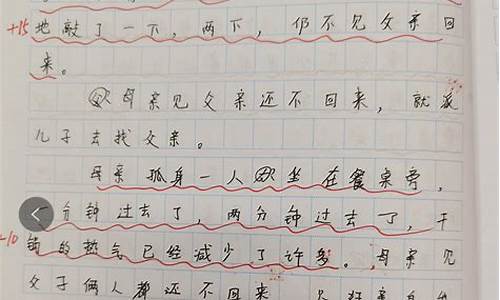 +15 地敲了一下，两下，仍不见父亲回
来。
母亲见父亲还不回来，就派
儿子去找父亲。
母亲孤身一人坐在餐桌旁，
分钟过去了，两分钟过去了，
+10 锅的热气已经减少了许多。母亲见
父子俩人都还不回来